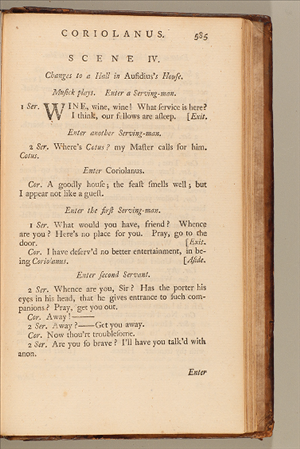 CORIOLANUS. 585
SCENE IV.
Changes to a Hall in Aufidius's House.
Musick plays. Enter a Serving-man.
1 Ser. WINE, wine, wine! What service is here?
I think, our fellows are asleep. [Exit.
Enter another Serving-man.
2 Ser. Where's Cotus? my Master calls for him.
Cotus.
Enter Coriolanus.
Cor. A goodly house; the feast smells well; but
I appear not like a guest.
Enter the first Serving-man.
1 Ser. What would you have, friend? Whence
are you? Here's no place for you. Pray, go to the
door. [Exit.
Cor. I have deserv'd no better entertainment, in be-
ing Coriolanus. [Aside.
Enter second Servant.
2 Ser. Whence are you, Sir? Has the porter his
eyes in his head, that he gives entrance to such com-
panions? Pray, get you out.
Cor. Away!——
2 Ser. Away?——Get you away.
Cor. Now thou'rt troublesome.
2 Ser. Are you so brave? I'll have you talk'd with
anon.
Enter